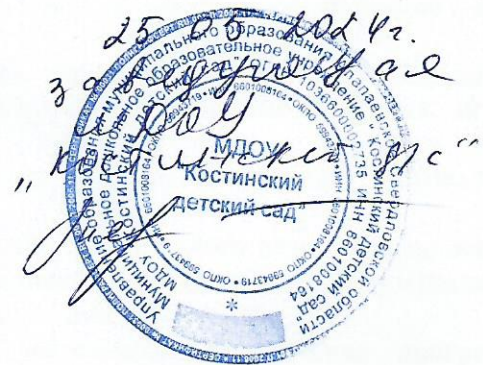 25 05 2024г.
заведующая
МДОУ
"Костинский д/с"
МДОУ
"Костинский
детский сад"
Управление образования муниципального образования Алапаевское Свердловской области
Муниципальное дошкольное образовательное учреждение "Костинский детский сад"
МДОУ "Костинский детский сад" ОГРН 1036600002735 ИНН 6601008164
ИНН 6601008164 • ОКПО 59943719 •